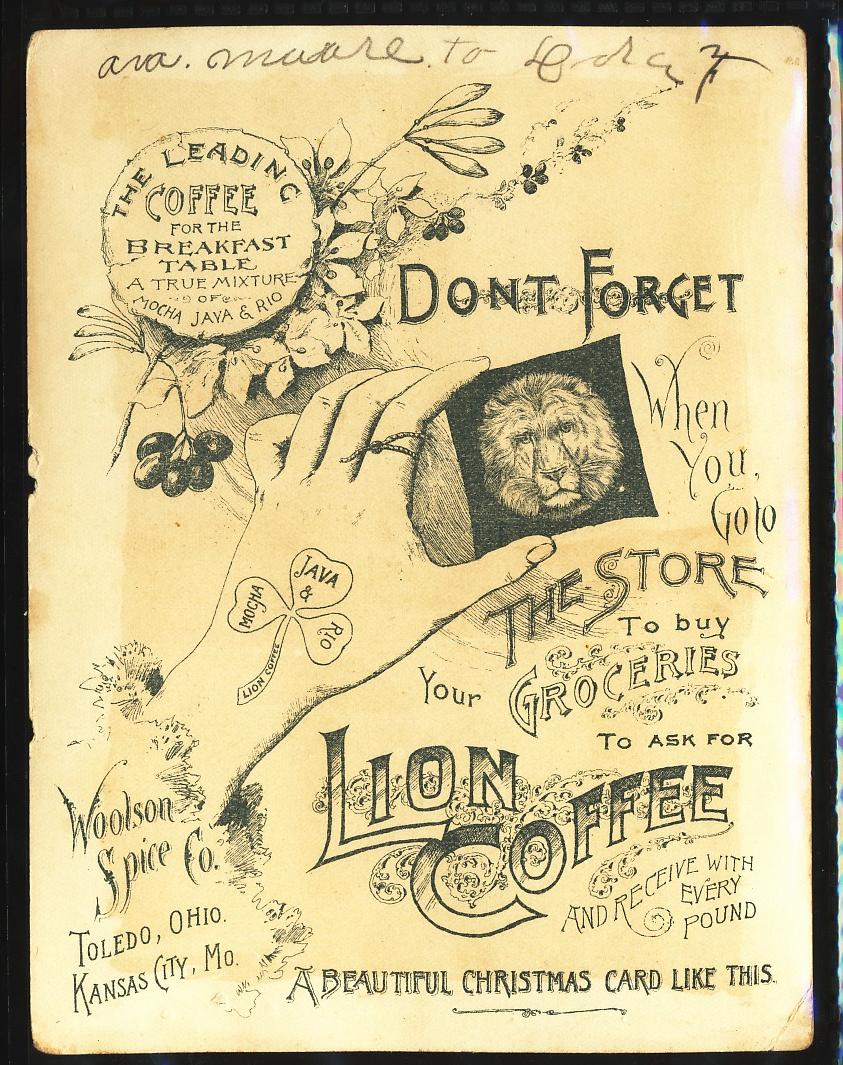 ava. moore. to
THE LEADING
COFFEE
FOR THE
BREAKFAST
TABLE
A TRUE MIXTURE
OF
MOCHA JAVA & RIO
DONT FORGET
When
You,
Goto
THE STORE
To buy
Your GROCERIES
TO ASK FOR
LION
COFFEE
AND RECEIVE WITH
EVERY
POUND
A BEAUTIFUL CHRISTMAS CARD LIKE THIS.
MOCHA
JAVA
&
RIO
LION COFFEE
Woolson
Spice Co.
TOLEDO, OHIO.
KANSAS CITY, MO.